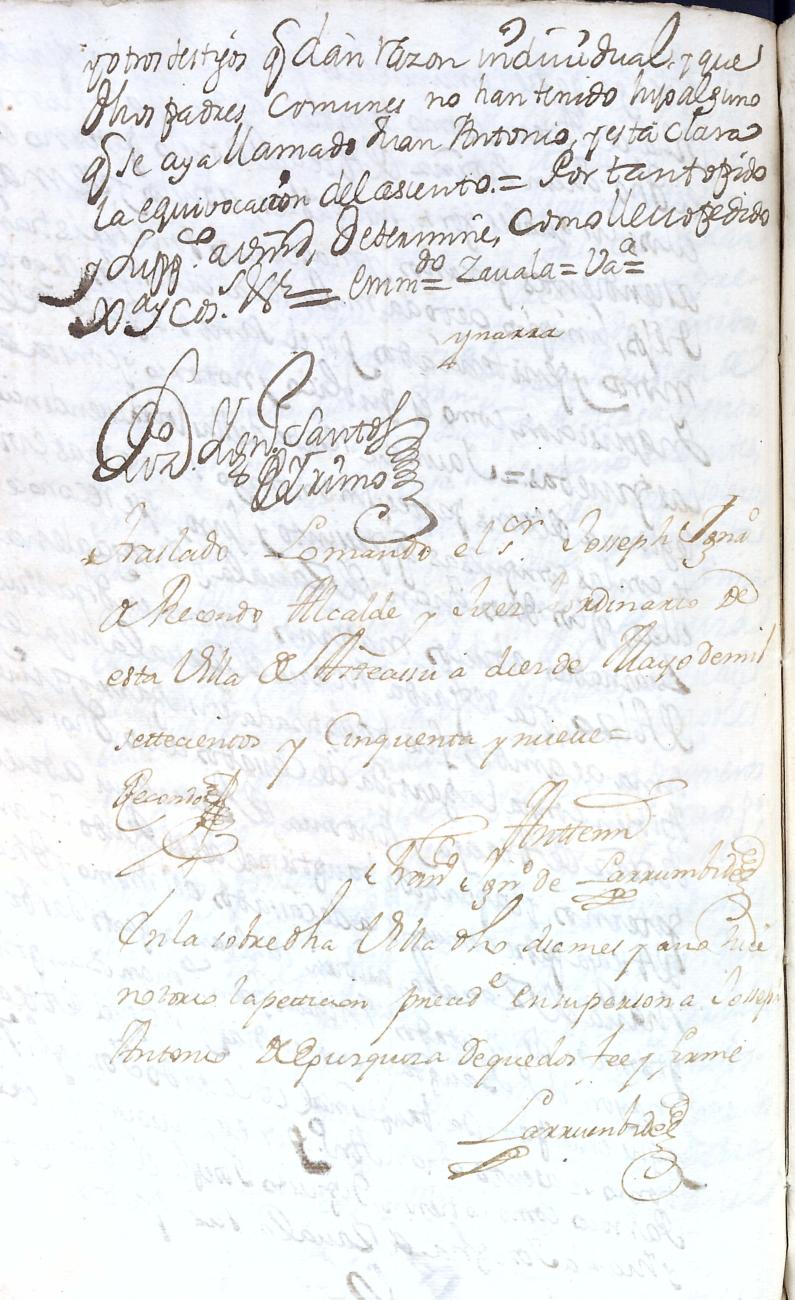 y otros testigos q dan razon individual, y que
dhos padres comunes no han tenido hijo alguno
q se aya llamado Juan Antonio, y está clara
la equivocacion del asiento.= Por tanto pido
y supp.co a vmd, determine, como llevo pedido
y cos.s &c = Emm.do Zavala = Va.a =
ynarra
Santos
traslado Lo mando el s.or Joseph Ign.o
de Recondo Alcalde y Juez ordinario de
esta Villa de Arreassu a diez de Mayo de mil
settecientos y Cinquenta y nueve =
Recondo
Anttemi
Fran.co Ign.o de Larrumbide
En la sobre dha Villa dho dia mes y año hice
notorio la peticion preced.e en su persona a Joseph
Antonio de Epurquiza de que doi fee y firme
Larrumbide